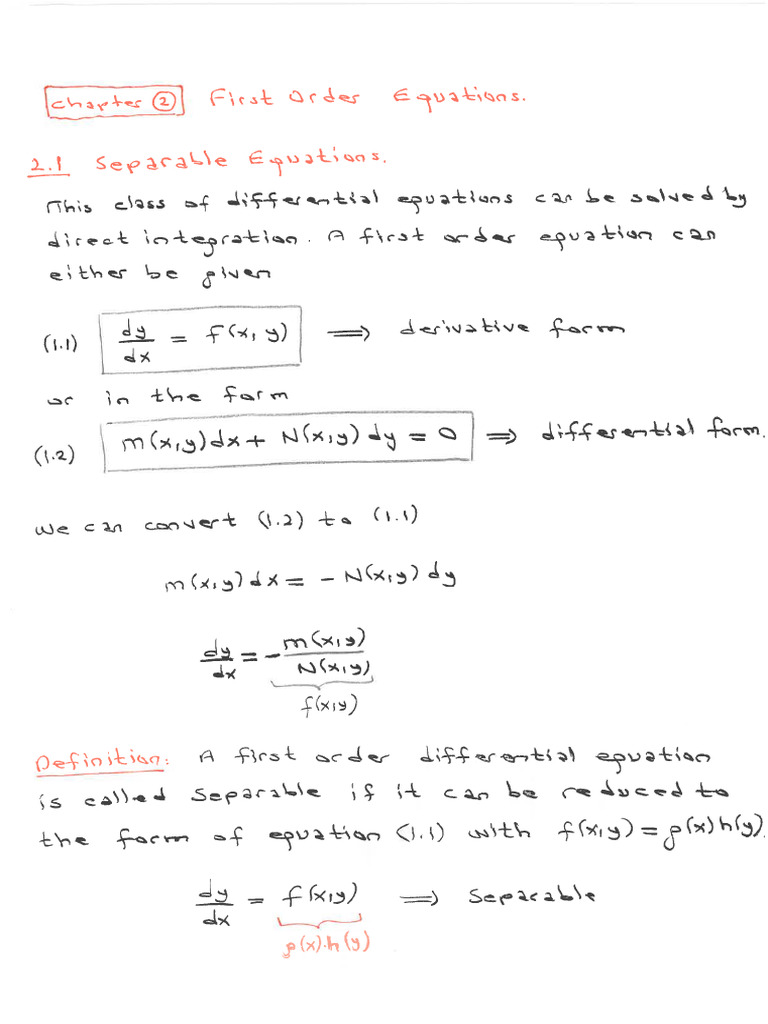 Chapter ② First Order Equations.
2.1 Separable Equations.
This class of differential equations can be solved by
direct integration. A first order equation can
either be given
(1.1) dy/dx = f(x, y) ⟹ derivative form
or in the form
(1.2) m(x,y)dx + N(x,y)dy = 0 ⟹ differential form.
We can convert (1.2) to (1.1)
m(x,y)dx = - N(x,y)dy
dy/dx = - m(x,y)/N(x,y)
f(x,y)
Definition: A first order differential equation
is called separable if it can be reduced to
the form of equation (1.1) with f(x,y) = g(x)h(y).
dy/dx = f(x,y) ⟹ Separable
g(x).h(y)